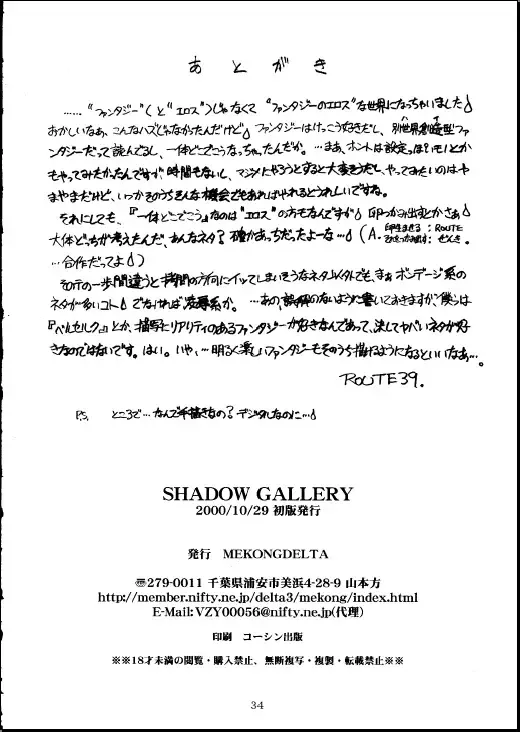 あとがき
……“ファンタジー”(と“エロス”)じゃなくて“ファンタジーのエロス”な世界になっちゃいました
おかしいなぁ、こんなハズじゃなかったんだけど ファンタジーはけっこう好きだし、別世界創造型ファ
ンタジーだって読んでるし、一体どこでこうなっちゃったんだか。…まあ、ホントは設定っぽいモノとか
もやってみたかったんですが時間もないし、マジメにやろうとすると大変そうだし、やってみたいのはや
まやまだけど、いつかそのうちそんな機会でもあればやれるとうれしいですね。
それにしても、『一体どこでこう』なのは“エロス”の方もなんですが 卵つかみ出すとかさぁ
大体どっちが考えたんだ、あんなネタ？確かあっちだったよーな…(A. 卵生ませる：ROUTE
…合作だってよ)
その一歩間違うと拷問の方向にイッてしまいそうなネタ以外でも、まぁボンデージ系の
ネタが多いコト でなければ凌辱系か。…あの、誤解のないように書いておきますが、僕らは
『ベルセルク』とか、描写にリアリティのあるファンタジーが好きなんであって、決してヤバいネタが好
きなのではないです。はい。いや、…明るく楽しいファンタジーもそのうち描けるようになるといいなぁ…。
ROUTE39.
P.S. ところで…なんで手描きなの？デジタルなのに…
SHADOW GALLERY
2000/10/29 初版発行
発行 MEKONGDELTA
〠279-0011 千葉県浦安市美浜4-28-9 山本方
http://member.nifty.ne.jp/delta3/mekong/index.html
E-Mail:VZY00056@nifty.ne.jp(代理)
印刷 コーシン出版
※※18才未満の閲覧・購入禁止、無断複写・複製・転載禁止※※
34